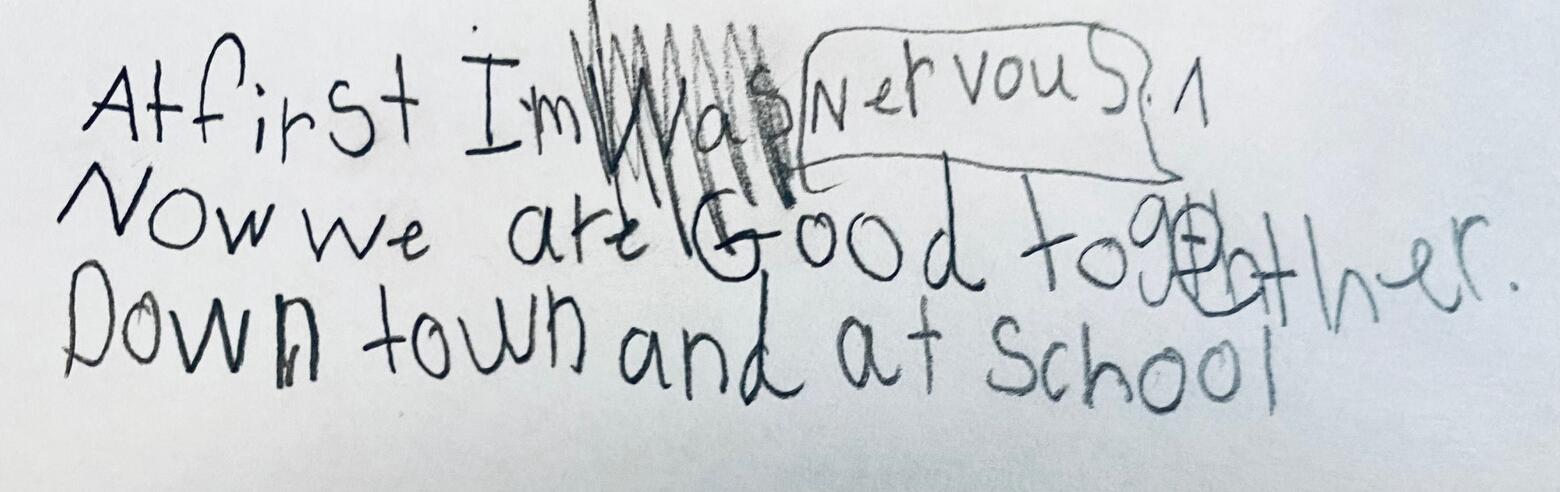 At first Im Was Nervous. 1
Now we are Good together.
Down town and at school